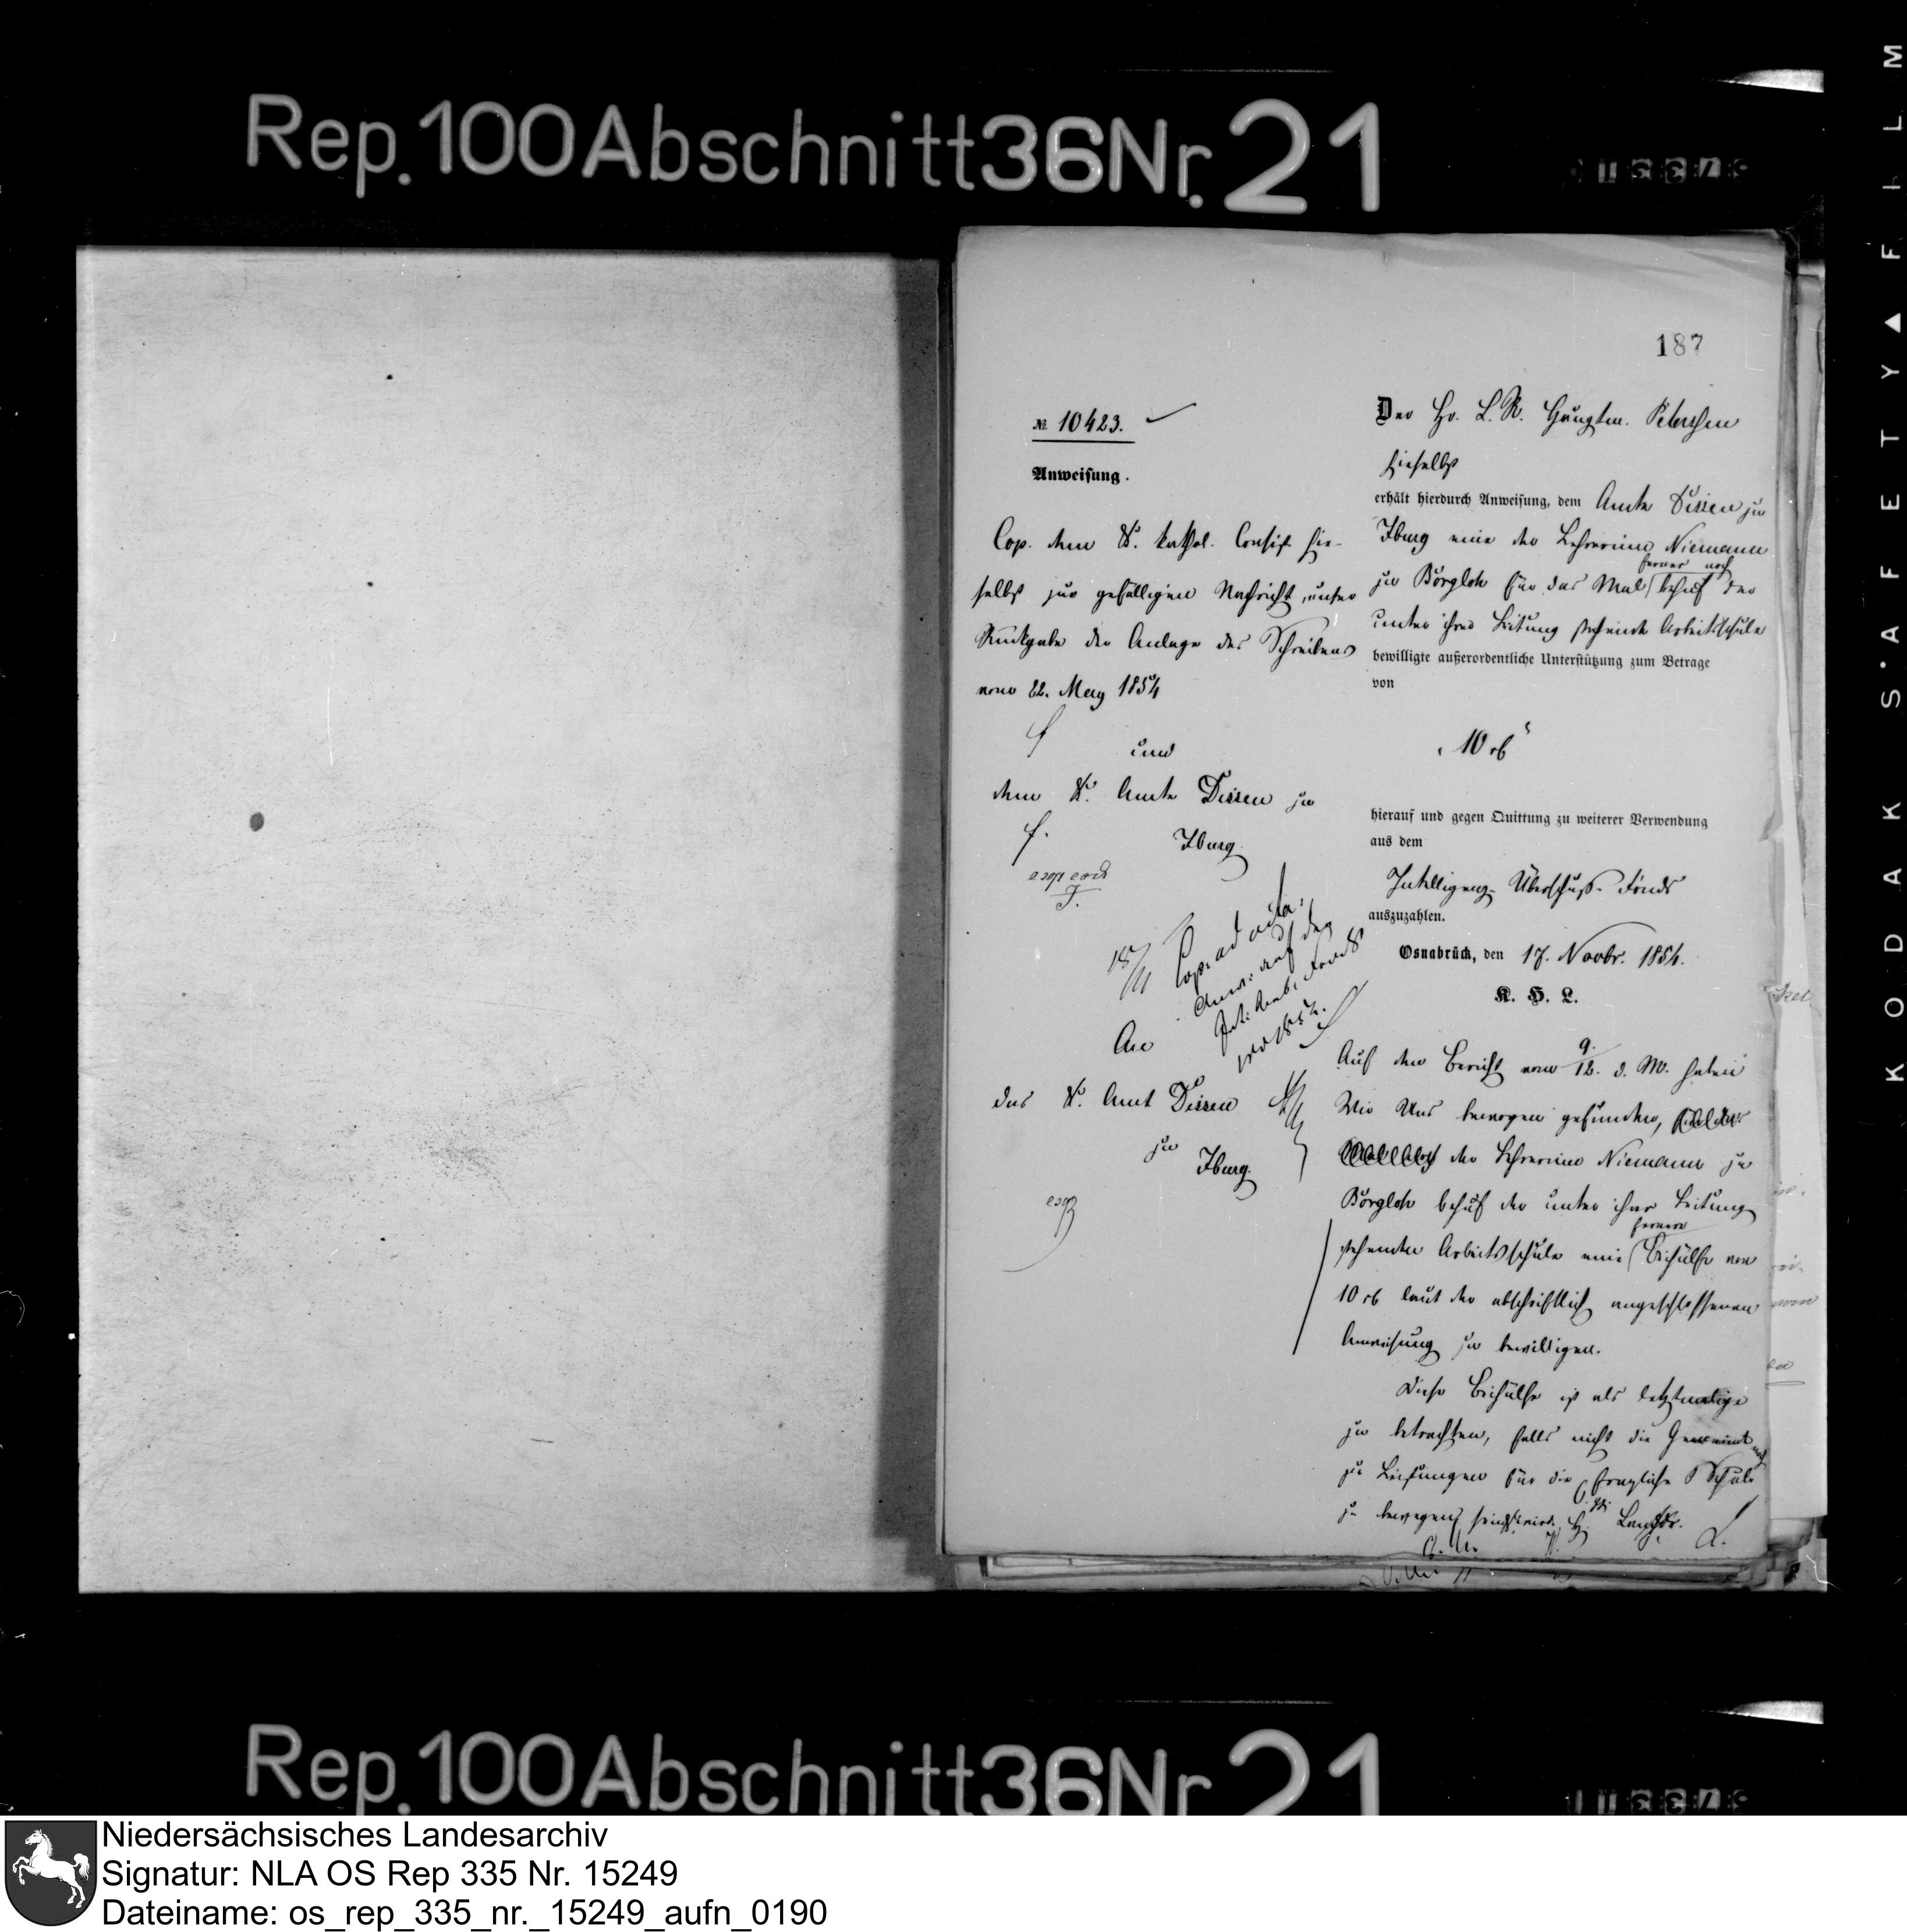 Rep. 100 Abschnitt 36 Nr. 21
187
№ 10423.
Anweisung.
Cop. dem K. kathol. Consist. hie-
selbst zur gefälligen Nachricht, unter
Rückgabe der Anlage des Schreibens
vom 22. May 1854
und
dem K. Amte Dissen zu
Iburg
Cop. ad acta,
Anw. auf den
pro 1854.
An
das K. Amt Dissen
zu
Iburg.
Der Hr. L. R. Petersen
hieselbst
erhält hierdurch Anweisung, dem Amte Dissen zu
Iburg eine der Lehrerinn Niemann
zu Borgloh für das Mal ferner noch behuf der
unter ihrer Leitung stehende Arbeitsschule
bewilligte außerordentliche Unterstützung zum Betrage
von
10 rb
hierauf und gegen Quittung zu weiterer Verwendung
aus dem
Intelligenz-Überschuß-Fonds
auszuzahlen.
Osnabrück, den 17. Novbr. 1854.
K. H. L.
Auf den Bericht vom 9./12. d. M. haben
Wir Uns bewogen gefunden,
der Lehrerinn Niemann zu
Borgloh behuf der unter ihrer Leitung
stehenden Arbeitsschule eine fernere Beihülfe von
10 rb laut der abschriftlich angeschlossenen
Anweisung zu bewilligen.
Diese Beihülfe ist als letztmalige
zu betrachten, falls nicht die Gemeinde
zu Leistungen für die fragliche Schule
zu bewegen
KODAK SAFETY FILM
Rep. 100 Abschnitt 36 Nr. 21
Niedersächsisches Landesarchiv
Signatur: NLA OS Rep 335 Nr. 15249
Dateiname: os_rep_335_nr._15249_aufn_0190